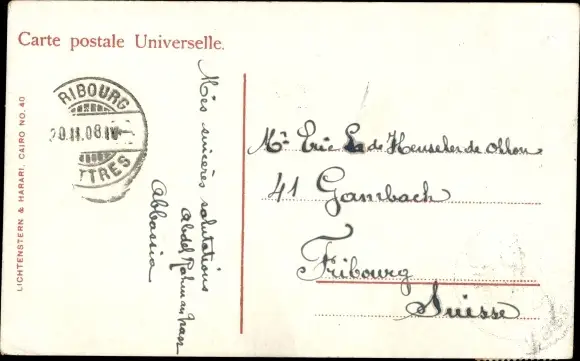 Carte postale Universelle.
LICHTENSTERN & HARARI, CAIRO NO. 40
FRIBOURG
29.II.08.IV
LETTRES
Mes sincères salutations
Abdel Rahman
Abbassia
Mr. Eric de
41 Gambach
Fribourg
Suisse